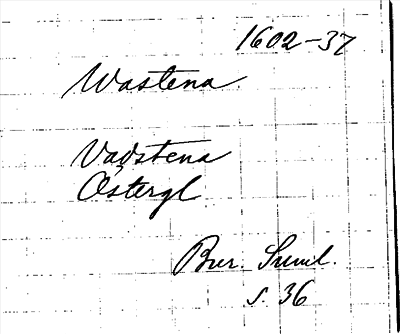 1602-37
Wastena
Vadstena
Östergl
Bur. Suml.
s. 36